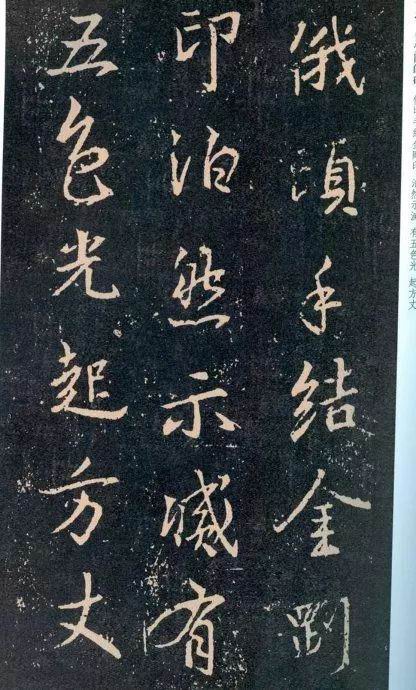 俄頃手結金剛印 泊然示滅 有五色光 起方丈
俄頃手結金剛
印泊然示滅有
五色光起方丈